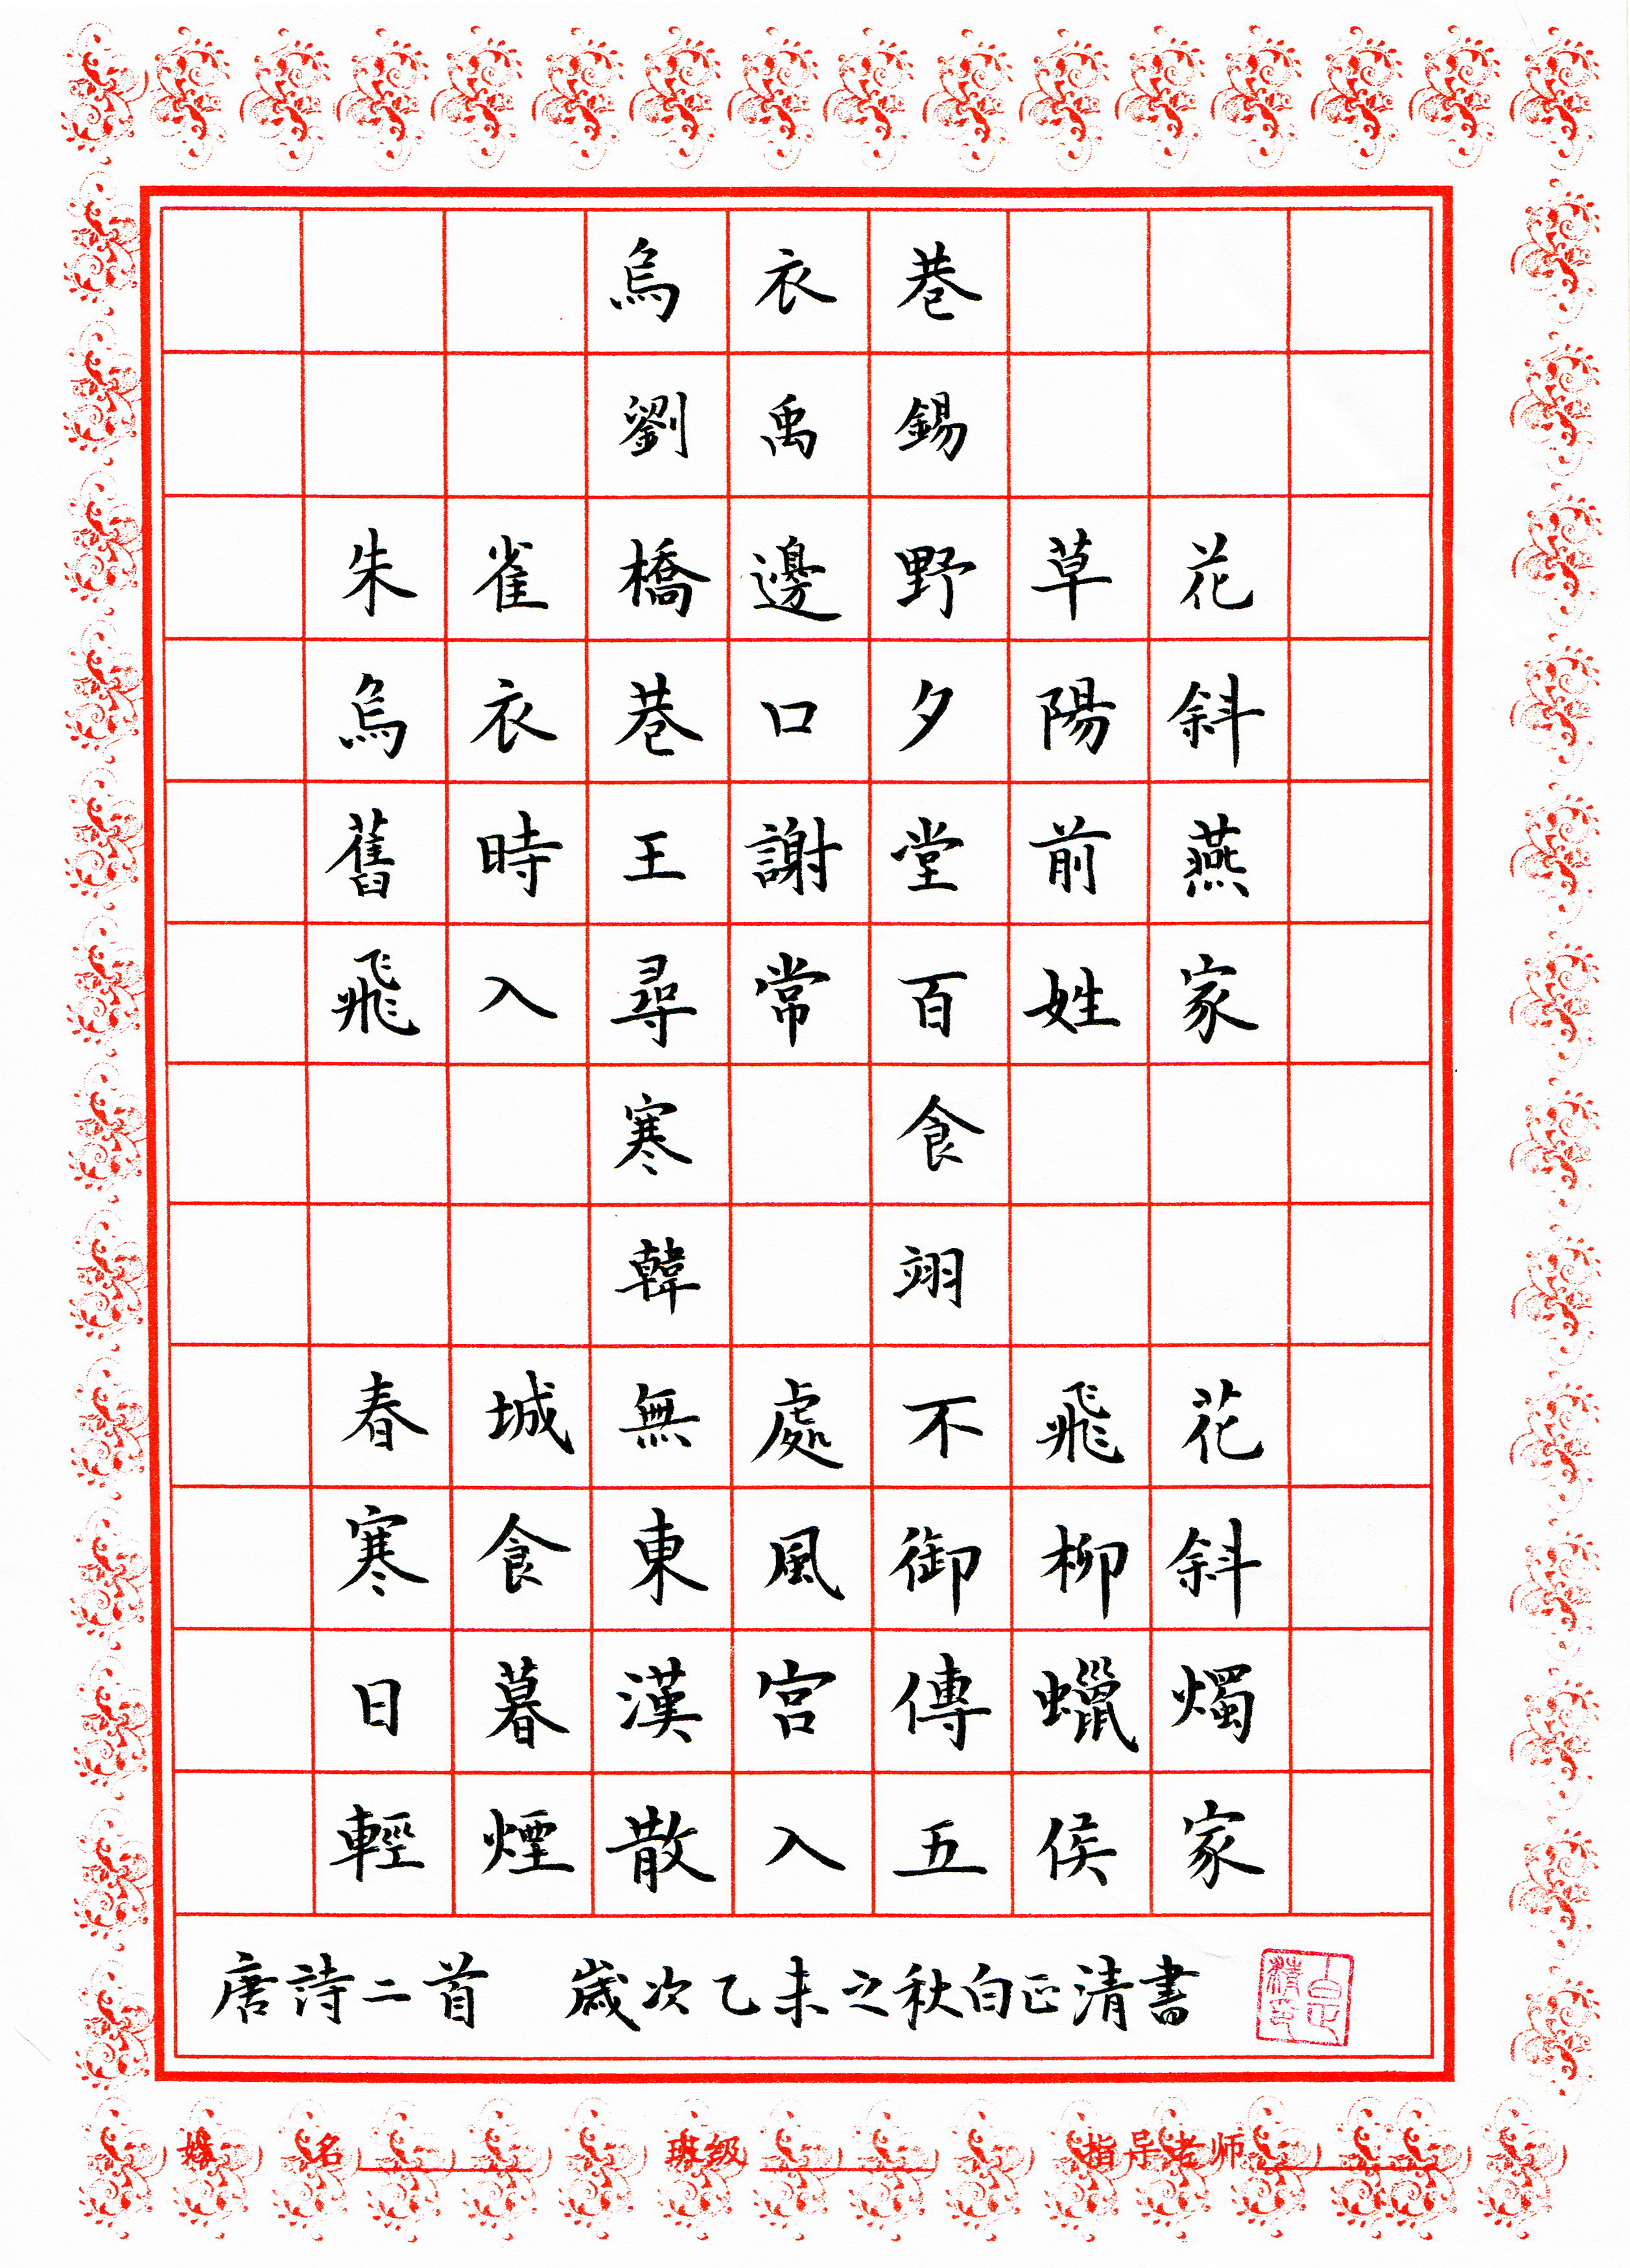 烏衣巷
劉禹錫
朱雀橋邊野草花
烏衣巷口夕陽斜
舊時王謝堂前燕
飛入尋常百姓家
寒食
韓翃
春城無處不飛花
寒食東風御柳斜
日暮漢宮傳蠟燭
輕煙散入五侯家
唐詩二首 歲次乙未之秋白正清書
姓名 班级 指导老师